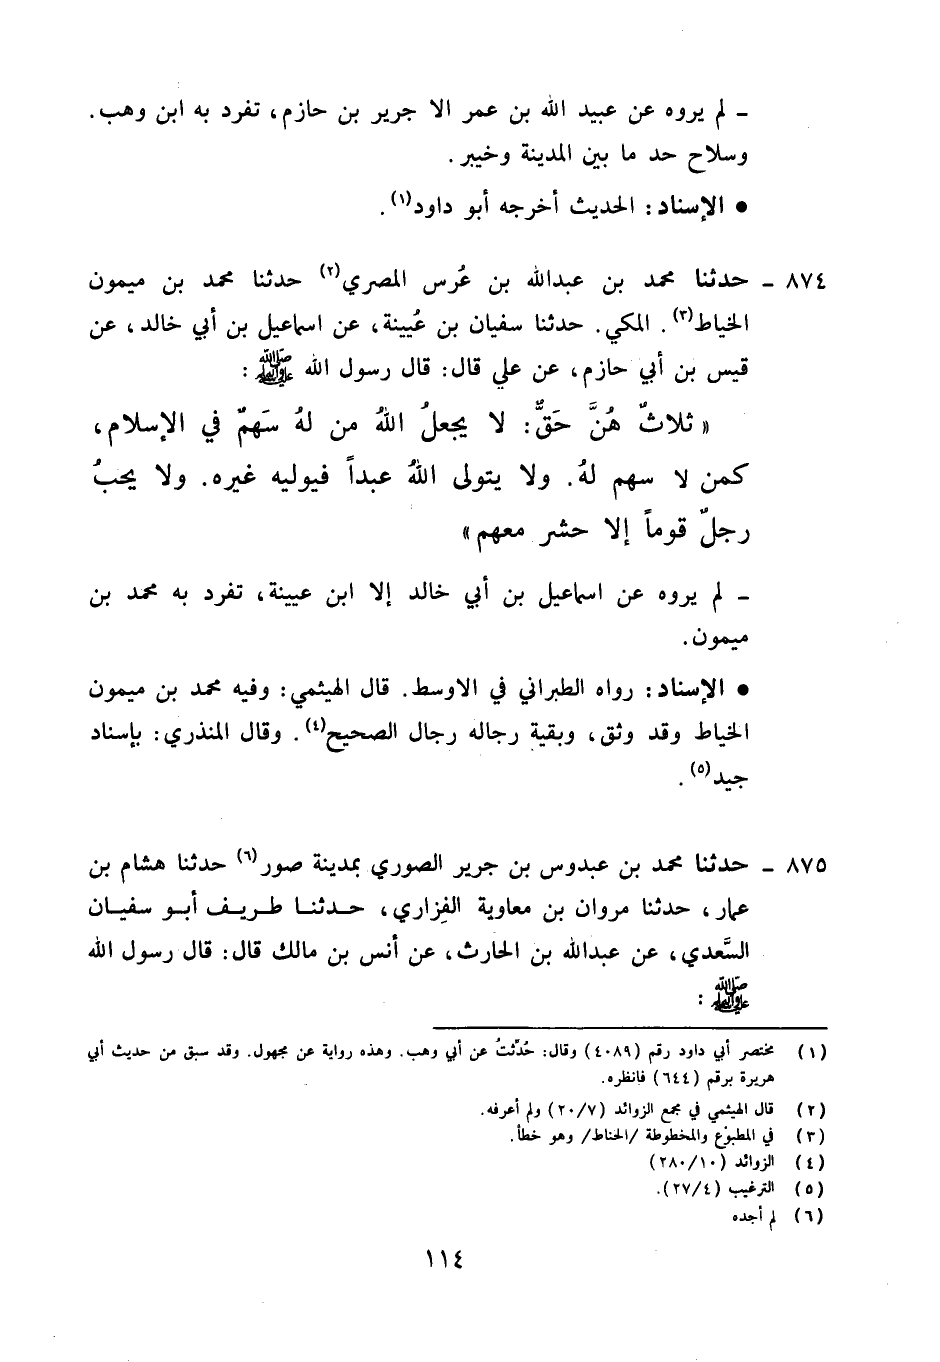 ـ لم يروه عن عبيد الله بن عمر الا جرير بن حازم، تفرد به ابن وهب.
وسلاح حد ما بين المدينة وخيبر.
● الإسناد: الحديث أخرجه أبو داود(١).
٨٧٤ ـ حدثنا محمد بن عبدالله بن عُرس المصري(٢) حدثنا محمد بن ميمون
الخياط(٣). المكي. حدثنا سفيان بن عُيينة، عن اسماعيل بن أبي خالد، عن
قيس بن أبي حازم، عن علي قال: قال رسول الله ﷺ :
« ثلاثٌ هُنَّ حَقٌّ: لا يجعلُ اللهُ من لهُ سَهمٌ في الإسلام،
كمن لا سهم لهُ. ولا يتولى اللهُ عبداً فيوليه غيره. ولا يحبُ
رجلٌ قوماً إلا حشر معهم »
ـ لم يروه عن اسماعيل بن أبي خالد إلا ابن عيينة، تفرد به محمد بن
ميمون.
● الإسناد: رواه الطبراني في الاوسط. قال الهيثمي: وفيه محمد بن ميمون
الخياط وقد وثق، وبقية رجاله رجال الصحيح(٤). وقال المنذري: بإسناد
جيد(٥).
٨٧٥ ـ حدثنا محمد بن عبدوس بن جرير الصوري بمدينة صور(٦) حدثنا هشام بن
عمار، حدثنا مروان بن معاوية الفزاري، حدثنا طريف أبو سفيان
السَّعدي، عن عبدالله بن الحارث، عن أنس بن مالك قال: قال رسول الله
ﷺ :
(١) مختصر أبي داود رقم (٤٠٨٩) وقال: حُدِّثتُ عن أبي وهب. وهذه رواية عن مجهول. وقد سبق من حديث أبي
هريرة برقم (٦٤٤) فانظره.
(٢) قال الهيثمي في مجمع الزوائد (٢٠/٧) ولم أعرفه.
(٣) في المطبوع والمخطوطة /الحناط/ وهو خطأ.
(٤) الزوائد (٢٨٠/١٠)
(٥) الترغيب (٢٧/٤).
(٦) لم أجده
١١٤